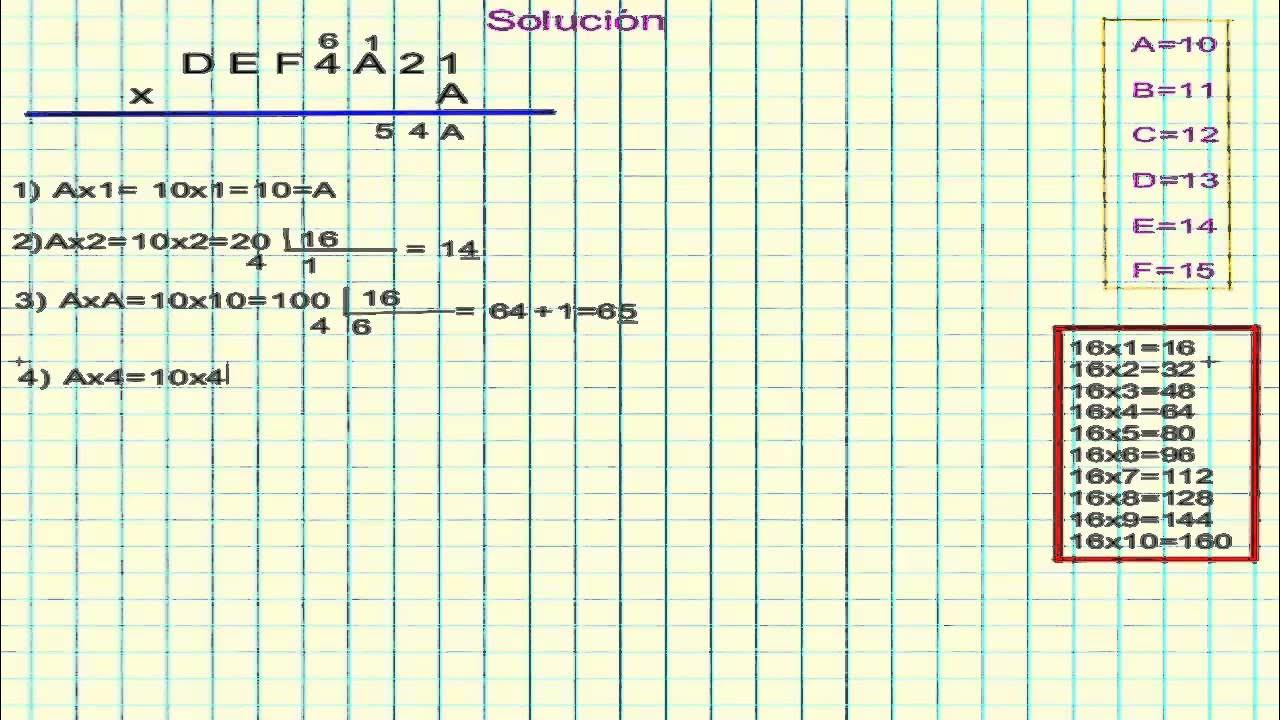 Solución
6 1
D E F 4 A 2 1
x A
5 4 A
1) Ax1= 10x1=10=A
2)Ax2=10x2=20 16 = 14
4 1
3) AxA=10x10=100 16 = 64+1=65
4 6
4) Ax4=10x4
A=10
B=11
C=12
D=13
E=14
F=15
16x1=16
16x2=32
16x3=48
16x4=64
16x5=80
16x6=96
16x7=112
16x8=128
16x9=144
16x10=160